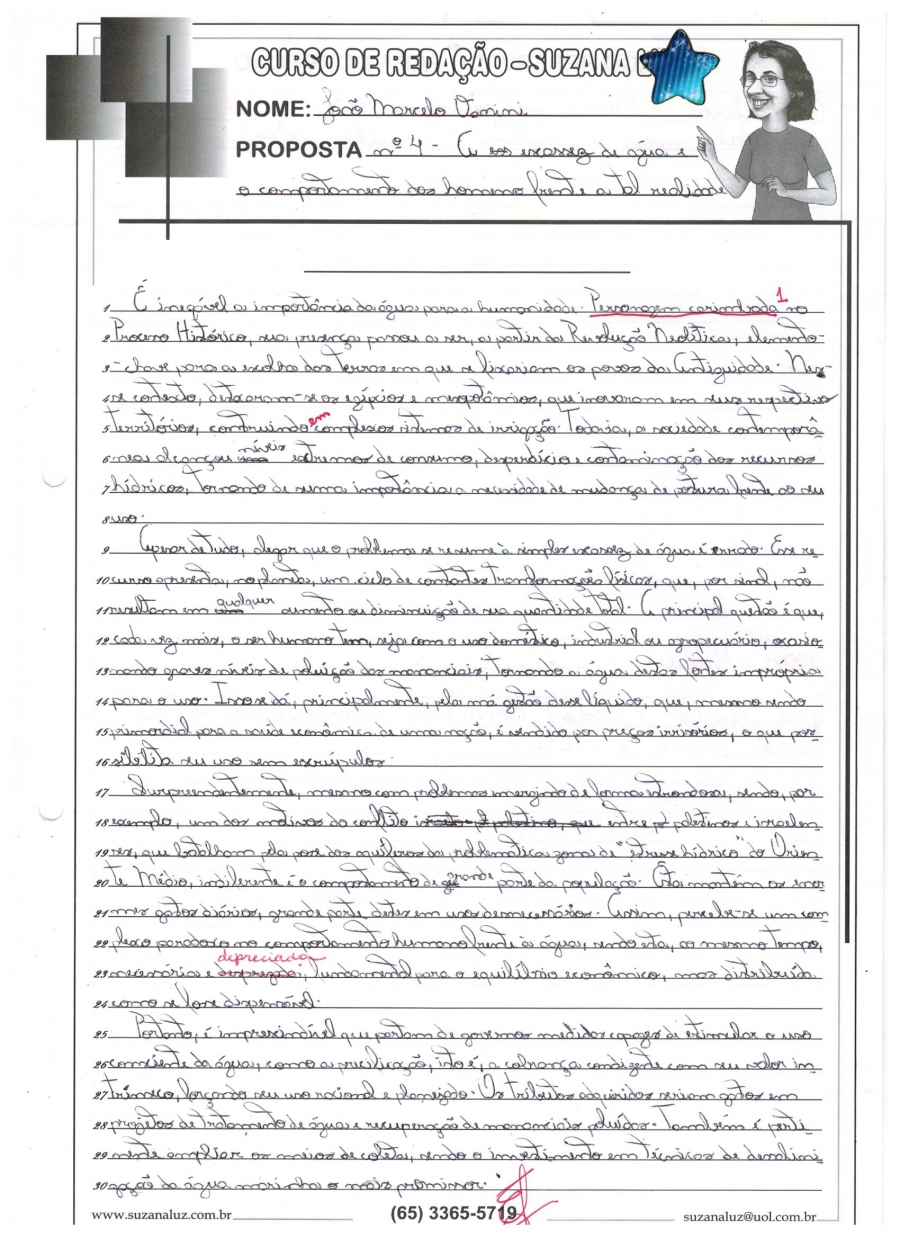 CURSO DE REDAÇÃO - SUZANA
NOME: João Marcelo
PROPOSTA nº 4 - A escassez de água e
o comportamento dos homens frente a tal realidade
1 É inegável a importância da água para a humanidade. Personagem carimbada 1 no
2 Processo Histórico, sua presença passou a ser, a partir da Revolução Neolítica, elemento-
3 -chave para a escolha das terras em que se fixariam os povos da Antiguidade. Nes-
4 se contexto, destacaram-se os egípcios e mesopotâmios, que inovaram em seus respectivos
5 territórios, construindo em complexos sistemas de irrigação. Todavia, a sociedade contemporâ-
6 nea alcançou níveis extremos de consumo, desperdício e contaminação dos recursos
7 hídricos, tornando de suma importância a necessidade de mudança de postura frente ao seu
8 uso.
9 Apesar de tudo, alegar que o problema se resume à simples escassez de água é errado. Esse re-
10 curso apresenta, no planeta, um ciclo de constantes transformações físicas, que, por sinal, não
11 resultam em qualquer aumento ou diminuição de sua quantidade total. A principal questão é que,
12 cada vez mais, o ser humano tem, seja com o uso doméstico, industrial ou agropecuário, ocasio-
13 nando graves níveis de poluição dos mananciais, tornando a água destas fontes imprópria
14 para o uso. Isso se dá, principalmente, pela má gestão desse líquido, que, mesmo sendo
15 primordial para a saúde econômica de uma nação, é vendido por preços irrisórios, o que pos-
16 sibilita seu uso sem escrúpulos.
17 Surpreendentemente, mesmo com problemas emergindo de forma estrondosa, sendo, por
18 exemplo, um dos motivos do conflito entre palestinos e israelen-
19 ses, que batalham pela posse dos aquíferos da problemática zona de "estresse hídrico" do Orien-
20 te Médio, indiferente é o comportamento de grande parte da população. Esta mantém os enor-
21 mes gastos diários, grande parte, destes em usos desnecessários. Assim, percebe-se um com-
22 plexo paradoxo no comportamento humano frente à água, sendo esta, ao mesmo tempo,
23 necessária e depreciada, fundamental para o equilíbrio econômico, mas distribuída
24 como se fosse dispensável.
25 Portanto, é imprescindível que partam de governos medidas capazes de estimular o uso
26 consciente da água, como a precificação, isto é, a cobrança condizente com seu valor in-
27 trínseco, forçando seu uso racional e planejado. Os tributos adquiridos seriam gastos em
28 projetos de tratamento de água e recuperação de mananciais poluídos. Também é perti-
29 nente ampliar os meios de coleta, sendo o investimento em técnicas de dessalini-
30 zação da água marinha o mais promissor.
www.suzanaluz.com.br (65) 3365-5719 suzanaluz@uol.com.br